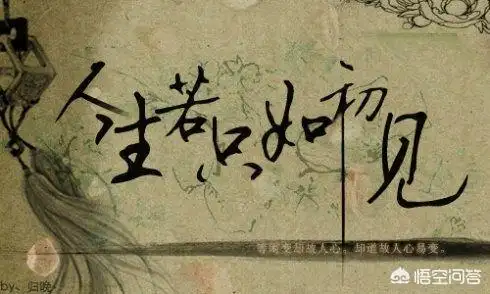 人生若只如初见
等闲变却故人心。却道故人心易变。
by、归晚
悟空问答